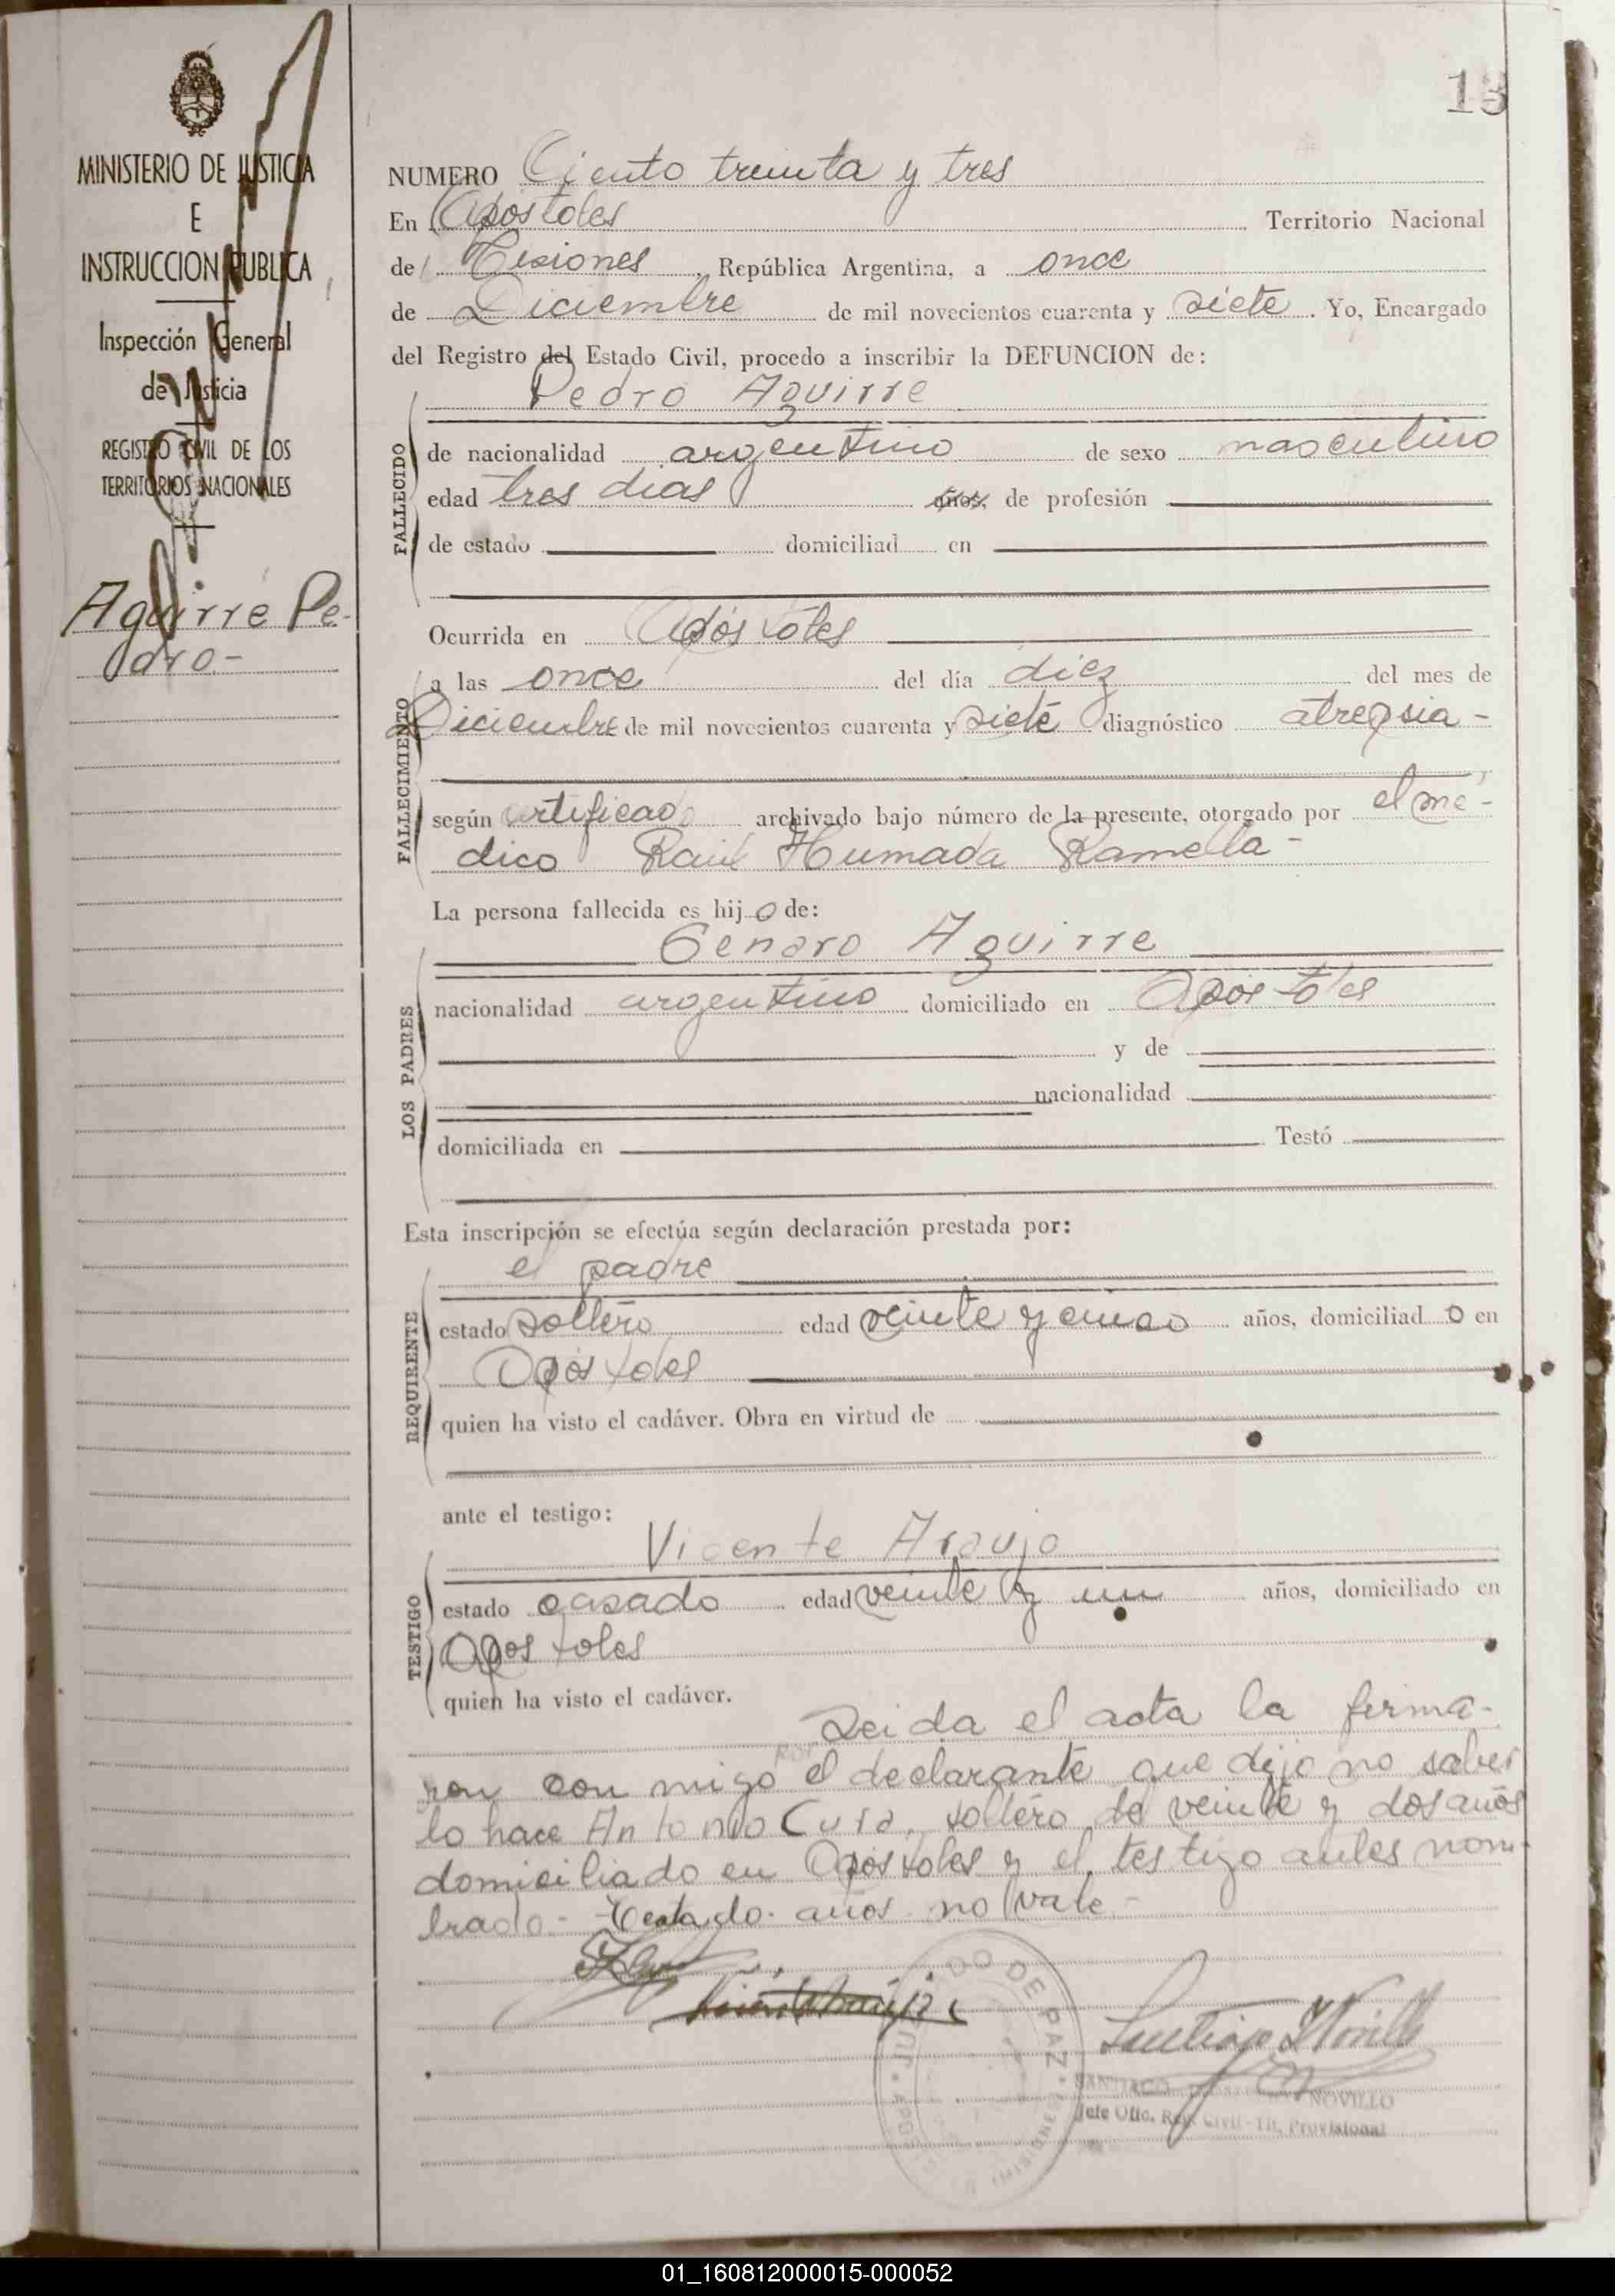 13
MINISTERIO DE JUSTICIA
E
INSTRUCCION PUBLICA
Inspección General
de Justicia
REGISTRO CIVIL DE LOS
TERRITORIOS NACIONALES
Aguirre Pe-
dro-
NUMERO Ciento treinta y tres
En Apóstoles Territorio Nacional
de Misiones, República Argentina, a once
de Diciembre de mil novecientos cuarenta y siete. Yo, Encargado
del Registro del Estado Civil, procedo a inscribir la DEFUNCION de:
Pedro Aguirre
FALLECIDO
de nacionalidad argentino de sexo masculino
edad tres dias años, de profesión
de estado domiciliad en
Ocurrida en Apóstoles
FALLECIMIENTO
a las once del día diez del mes de
Diciembre de mil novecientos cuarenta y siete diagnóstico atrepsia-
según certificado archivado bajo número de la presente, otorgado por el mé-
dico Raúl Humada Ramella-
La persona fallecida es hijo de:
Genaro Aguirre
LOS PADRES
nacionalidad argentino domiciliado en Apóstoles
y de
nacionalidad
domiciliada en Testó
Esta inscripción se efectúa según declaración prestada por:
el padre
REQUIRENTE
estado soltero edad veinte y cinco años, domiciliado en
Apóstoles
quien ha visto el cadáver. Obra en virtud de
ante el testigo:
Vicente Araujo
TESTIGO
estado casado edad veinte y un años, domiciliado en
Apostoles
quien ha visto el cadáver.
Leida el acta la firma-
ron con migo por el declarante que dijo no saber
lo hace Antonio Cura, soltero, de veinte y dos años
domiciliado en Apóstoles y el testigo antes nom-
brado- Testado- años- no vale-
JUZGADO DE PAZ
SANTIAGO NOVILLO
Jefe Ofic. Reg. Civil-Tit. Provisional
01_160812000015-000052